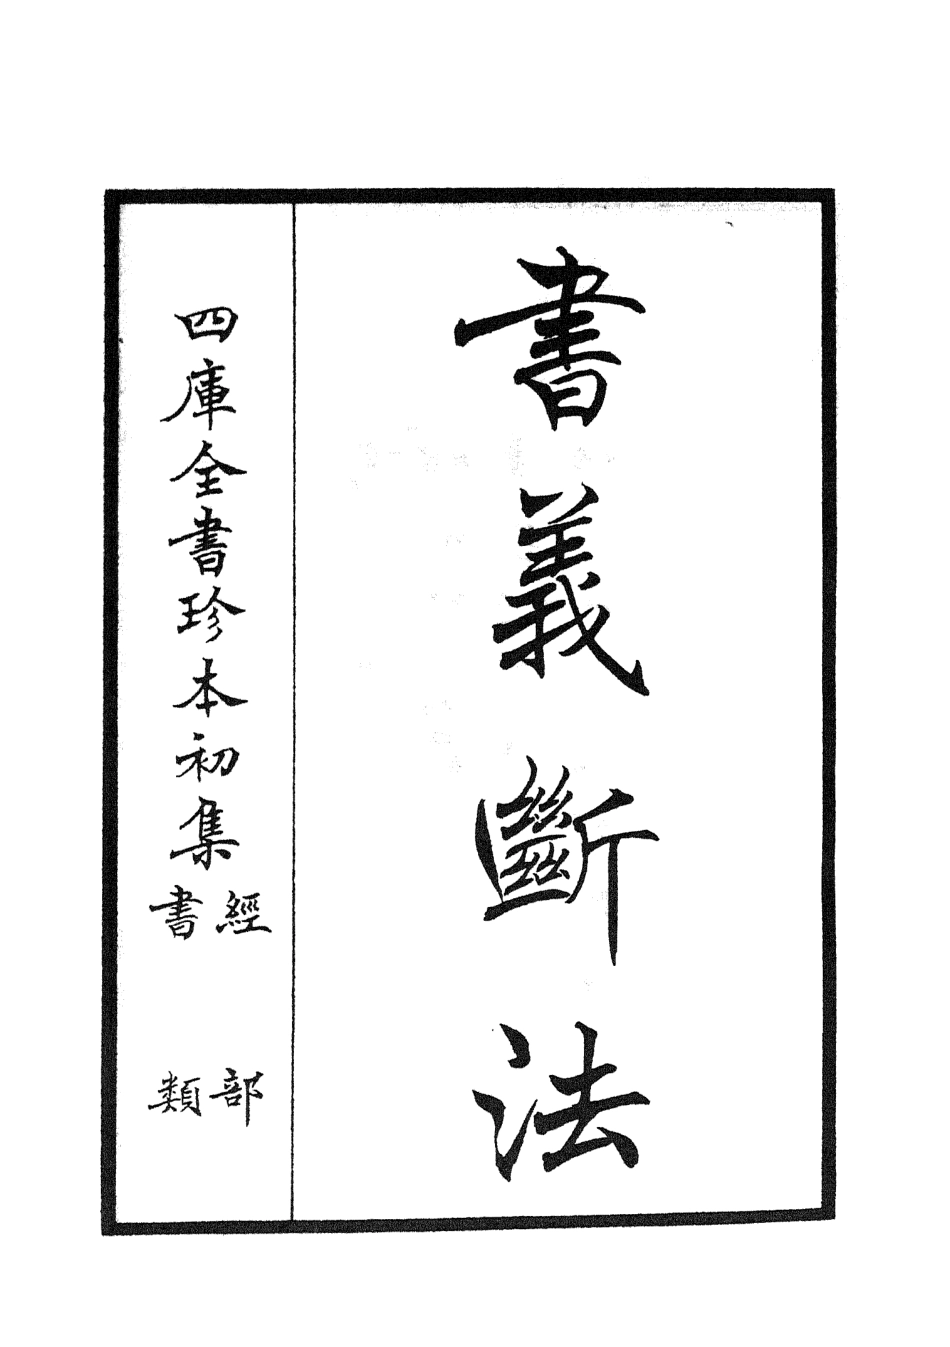 書義斷法
四庫全書珍本初集
經部
書類